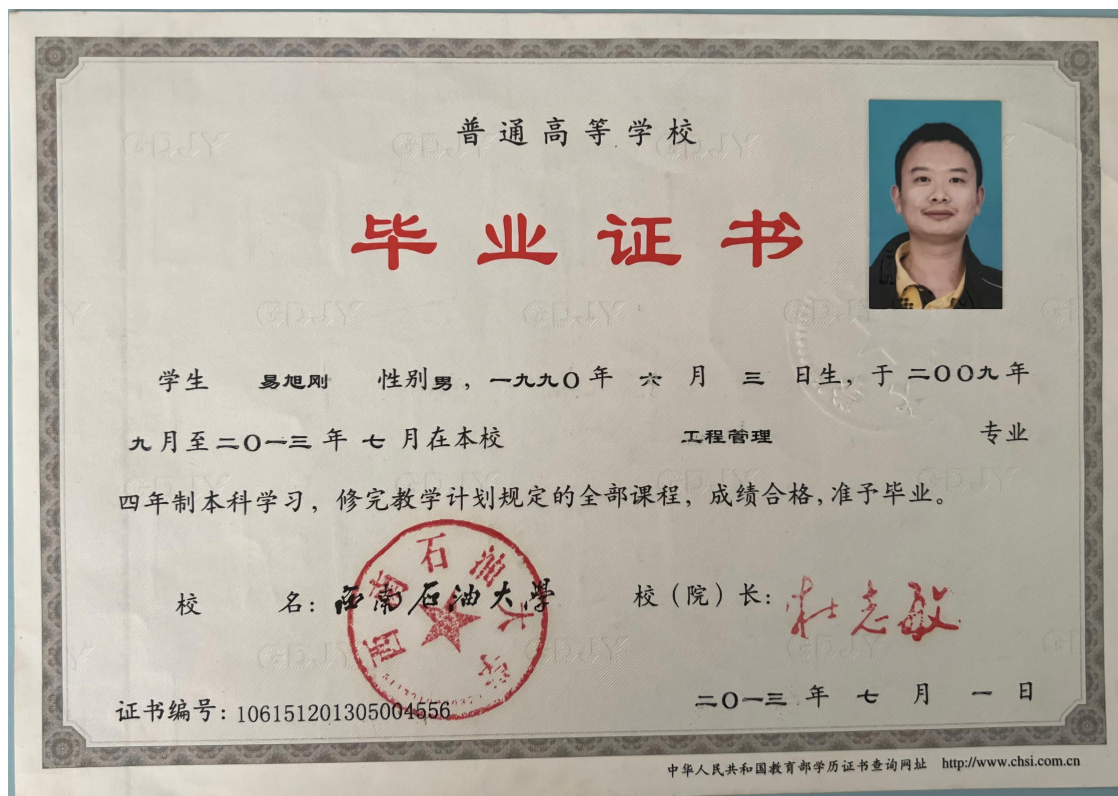 普通高等学校
毕业证书
学生 易旭刚 性别男，一九九〇年 六 月 三 日生，于二〇〇九年
九月至二〇一三年 七 月在本校 工程管理 专业
四年制本科学习，修完教学计划规定的全部课程，成绩合格，准予毕业。
校 名：西南石油大学 校（院）长：杜志敏
西南石油大学
二〇一三年 七 月 一 日
证书编号：106151201305004556
中华人民共和国教育部学历证书查询网址 http://www.chsi.com.cn